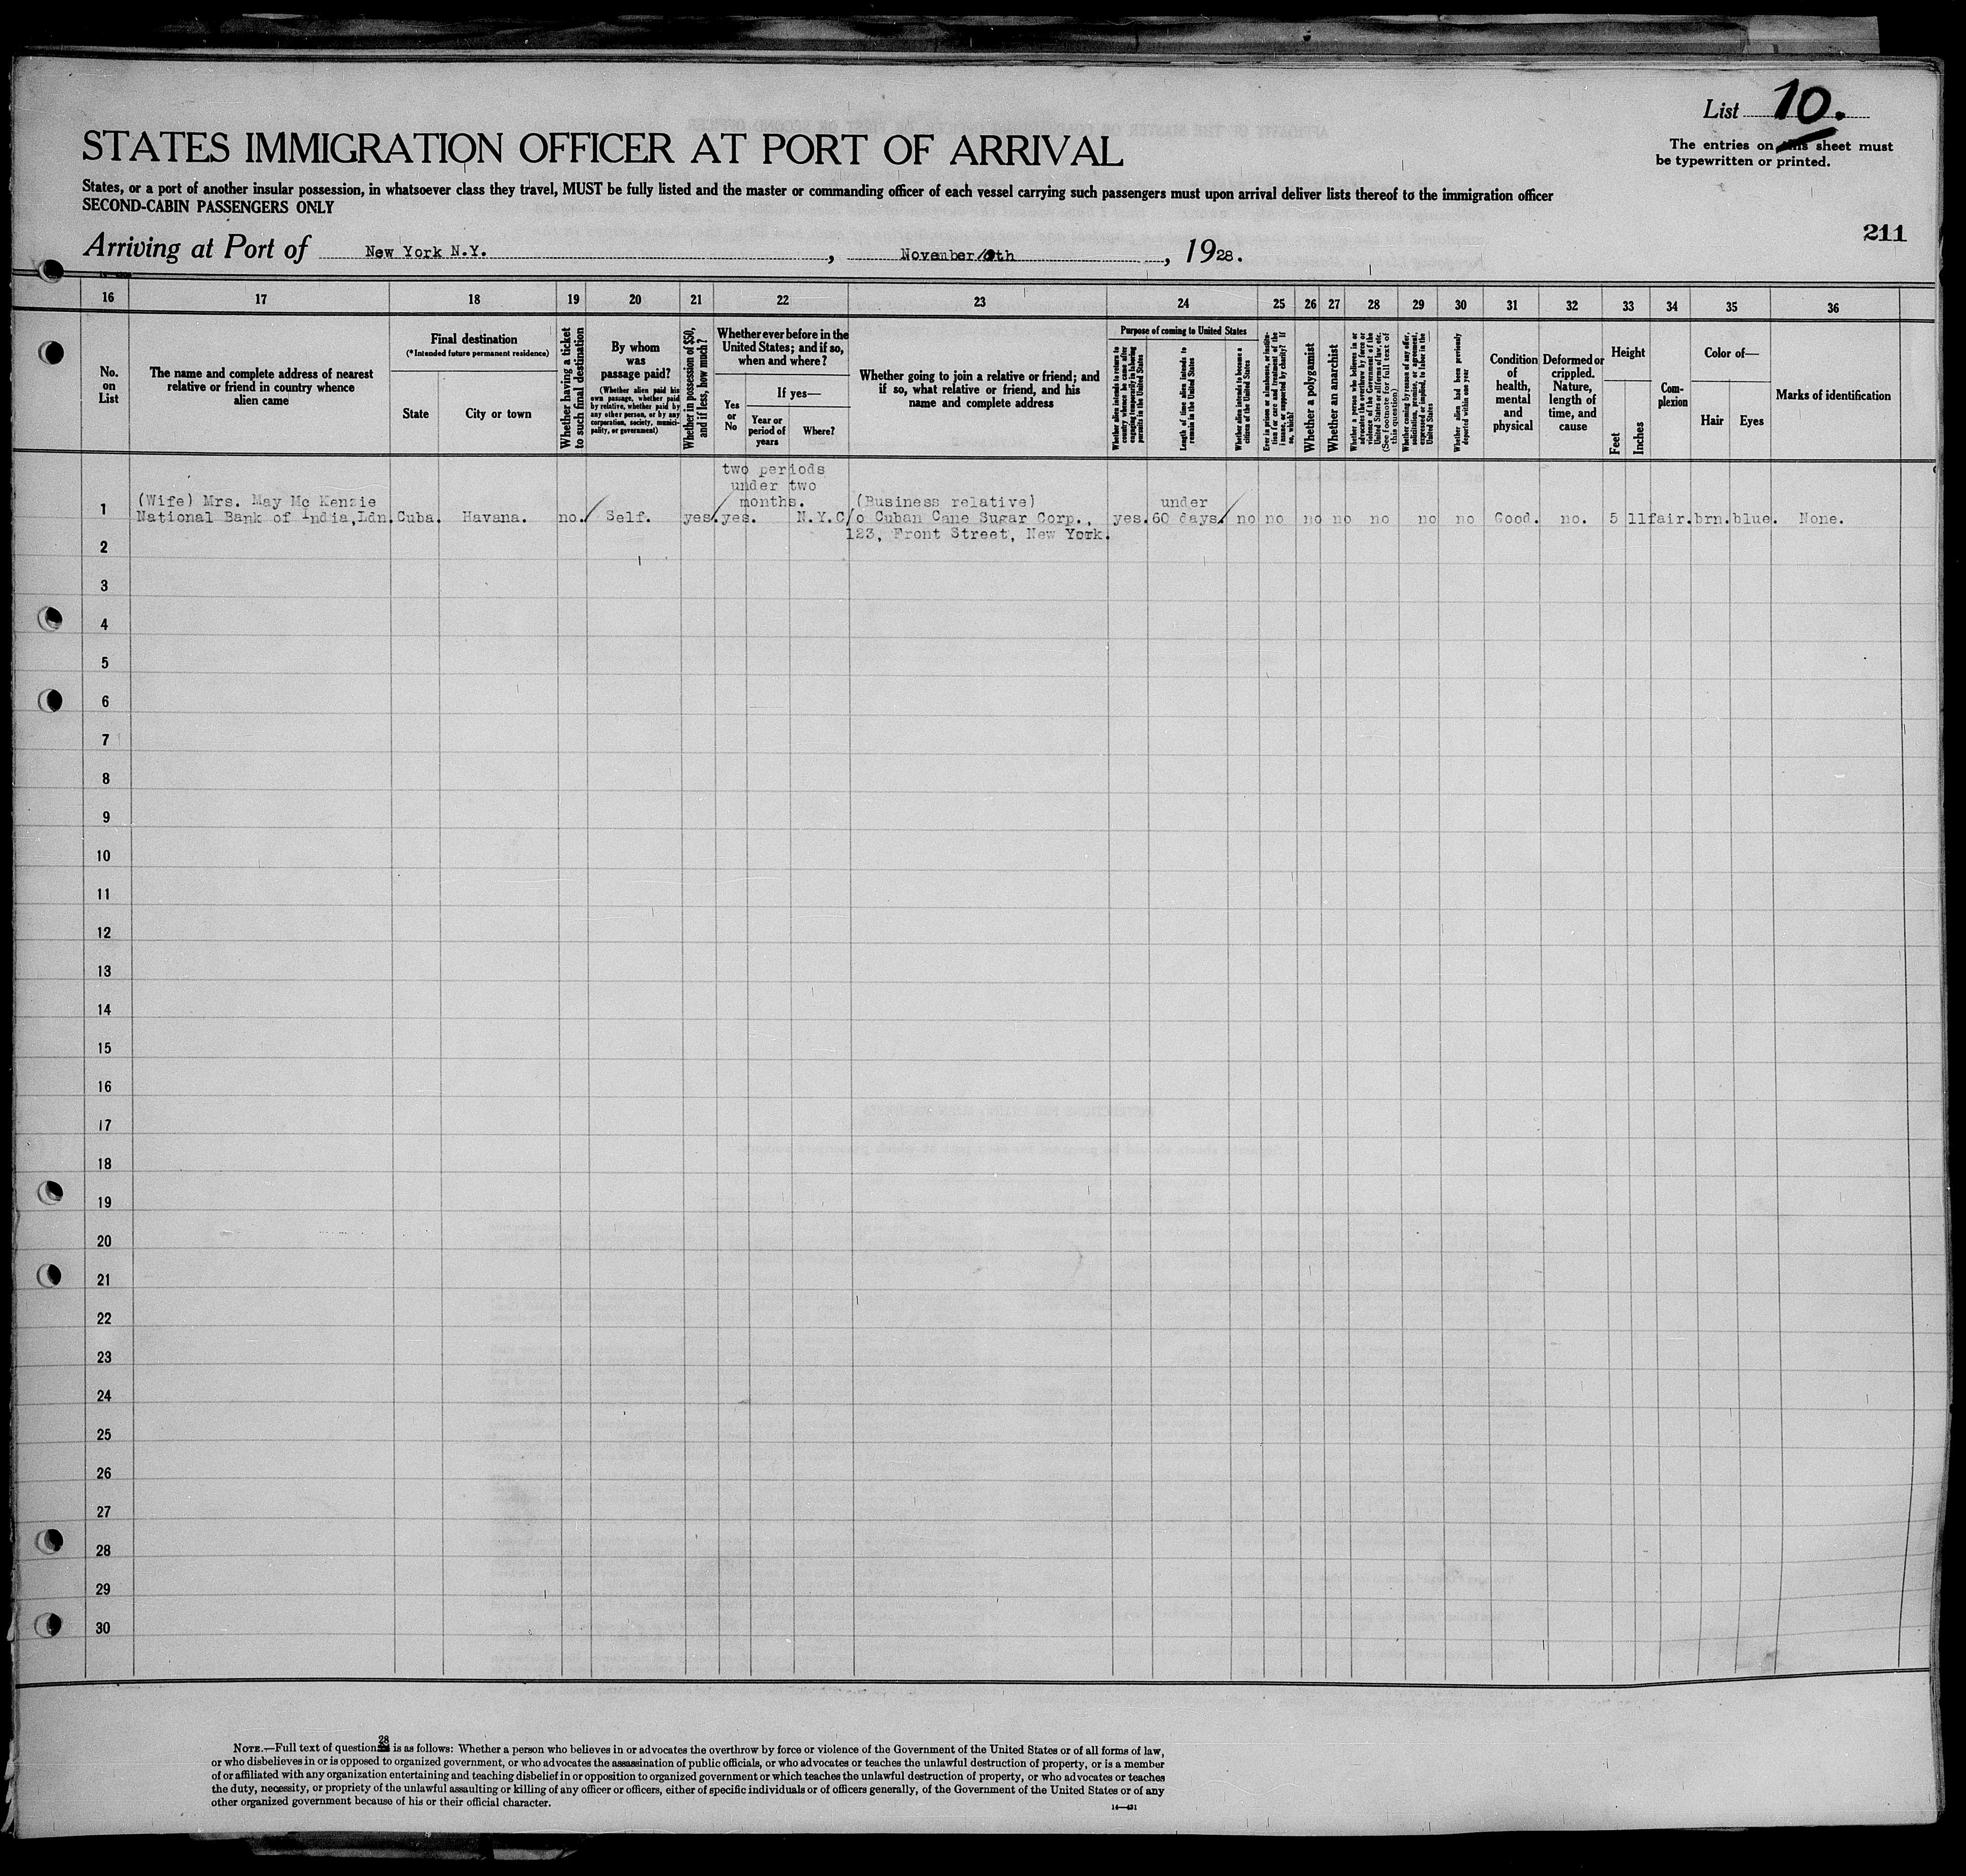 List 10.
The entries on this sheet must
be typewritten or printed.
STATES IMMIGRATION OFFICER AT PORT OF ARRIVAL
States, or a port of another insular possession, in whatsoever class they travel, MUST be fully listed and the master or commanding officer of each vessel carrying such passengers must upon arrival deliver lists thereof to the immigration officer
SECOND-CABIN PASSENGERS ONLY
211
Arriving at Port of New York N.Y. , November th , 1928.
16 17 18 19 20 21 22 23 24 25 26 27 28 29 30 31 32 33 34 35 36
No.
on
List
The name and complete address of nearest
relative or friend in country whence
alien came
Final destination
(*Intended future permanent residence)
State
City or town
Whether having a ticket
to such final destination
By whom
was
passage paid?
(Whether alien paid his
own passage, whether paid
by relative, whether paid by
any other person, or by any
corporation, society, munici-
pality, or government)
Whether in possession of $50,
and if less, how much?
Whether ever before in the
United States; and if so,
when and where?
Yes
or
No
If yes—
Year or
period of
years
Where?
Whether going to join a relative or friend; and
if so, what relative or friend, and his
name and complete address
Purpose of coming to United States
Whether alien intends to return to
country whence he came after
engaging temporarily in laboring
pursuits in the United States
Length of time alien intends to
remain in the United States
Whether alien intends to become a
citizen of the United States
Ever in prison or almshouse, or institu-
tion for care and treatment of the
insane, or supported by charity? If
so, which?
Whether a polygamist
Whether an anarchist
Whether a person who believes in or
advocates the overthrow by force or
violence of the Government of the
United States or all forms of law, etc.
(See footnote for full text of
this question)
Whether coming by reason of any offer,
solicitation, promise, or agreement,
expressed or implied, to labor in the
United States
Whether alien had been previously
deported within one year
Condition
of
health,
mental
and
physical
Deformed or
crippled.
Nature,
length of
time, and
cause
Height
Feet
Inches
Com-
plexion
Color of—
Hair
Eyes
Marks of identification
two periods
under two
months.
(Wife) Mrs. May Mc Kenzie (Business relative) under
1 National Bank of India,Ldn. Cuba. Havana. no. Self. yes. yes. N.Y. C/o Cuban Cane Sugar Corp., yes. 60 days. no no no no no no no Good. no. 5 11 fair. brn. blue. None.
123, Front Street, New York.
2
3
4
5
6
7
8
9
10
11
12
13
14
15
16
17
18
19
20
21
22
23
24
25
26
27
28
29
30
NOTE.—Full text of question 28 is as follows: Whether a person who believes in or advocates the overthrow by force or violence of the Government of the United States or of all forms of law,
or who disbelieves in or is opposed to organized government, or who advocates the assassination of public officials, or who advocates or teaches the unlawful destruction of property, or is a member
of or affiliated with any organization entertaining and teaching disbelief in or opposition to organized government or which teaches the unlawful destruction of property, or who advocates or teaches
the duty, necessity, or propriety of the unlawful assaulting or killing of any officer or officers, either of specific individuals or of officers generally, of the Government of the United States or of any
other organized government because of his or their official character.
14—431